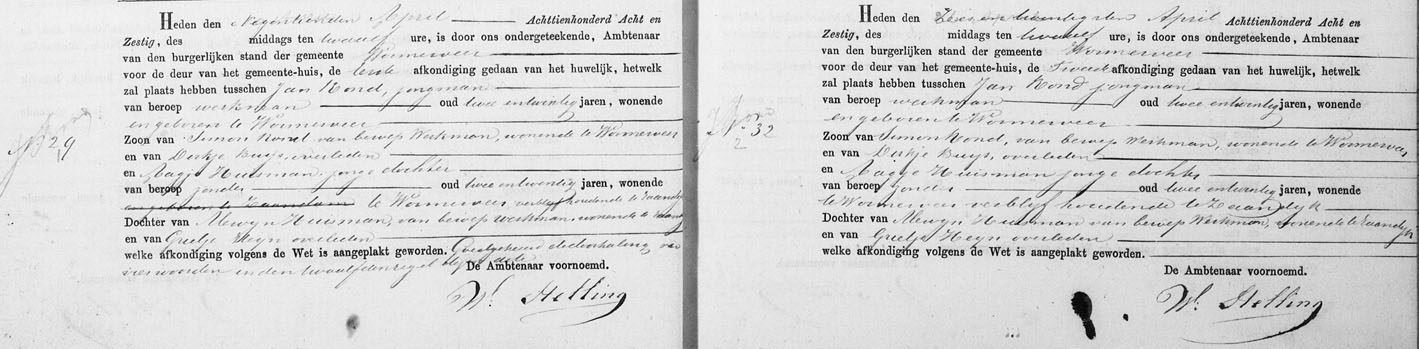 Heden den Negentienden April Achttienhonderd Acht en
Zestig, des middags ten twaalf ure, is door ons ondergeteekende, Ambtenaar
van den burgerlijken stand der gemeente Wormerveer
voor de deur van het gemeente-huis, de eerste afkondiging gedaan van het huwelijk, hetwelk
zal plaats hebben tusschen Jan Kond, jongman
van beroep werkman oud twee entwintig jaren, wonende
en geboren te Wormerveer
Zoon van Simon Kond van beroep Werkman, wonende te Wormerveer
en van Dirkje Buijs, overleden
en Aagje Huisman, jonge dochter
van beroep zonder oud twee entwintig jaren, wonende
en geboren te Zaandam te Wormerveer, verblyf houdende te Zaandyk
Dochter van Meuwyn Huisman, van beroep werkman, wonende te Zaandyk
en van Grietje Heyn overleden
welke afkondiging volgens de Wet is aangeplakt geworden. Goedgekeurd de doorhaling van
vier woorden in den twaalfden regel dezer akte
De Ambtenaar voornoemd.
W. Stelling
No 29
Heden den Zes en twintigsten April Achttienhonderd Acht en
Zestig, des middags ten twaalf ure, is door ons ondergeteekende, Ambtenaar
van den burgerlijken stand der gemeente Wormerveer
voor de deur van het gemeente-huis, de Tweede afkondiging gedaan van het huwelijk, hetwelk
zal plaats hebben tusschen Jan Kond jongman
van beroep werkman oud twee entwintig jaren, wonende
en geboren te Wormerveer
Zoon van Simon Kond, van beroep Werkman, wonende te Wormerveer
en van Dirkje Buijs, overleden
en Aagje Huisman jonge dochter
van beroep zonder oud twee entwintig jaren, wonende
te Wormerveer verblyf houdende te Zaandyk
Dochter van Meuwyn Huisman van beroep Werkman, wonende te Zaandyk
en van Grietje Heyn overleden
welke afkondiging volgens de Wet is aangeplakt geworden.
De Ambtenaar voornoemd.
W. Stelling
No 32
2